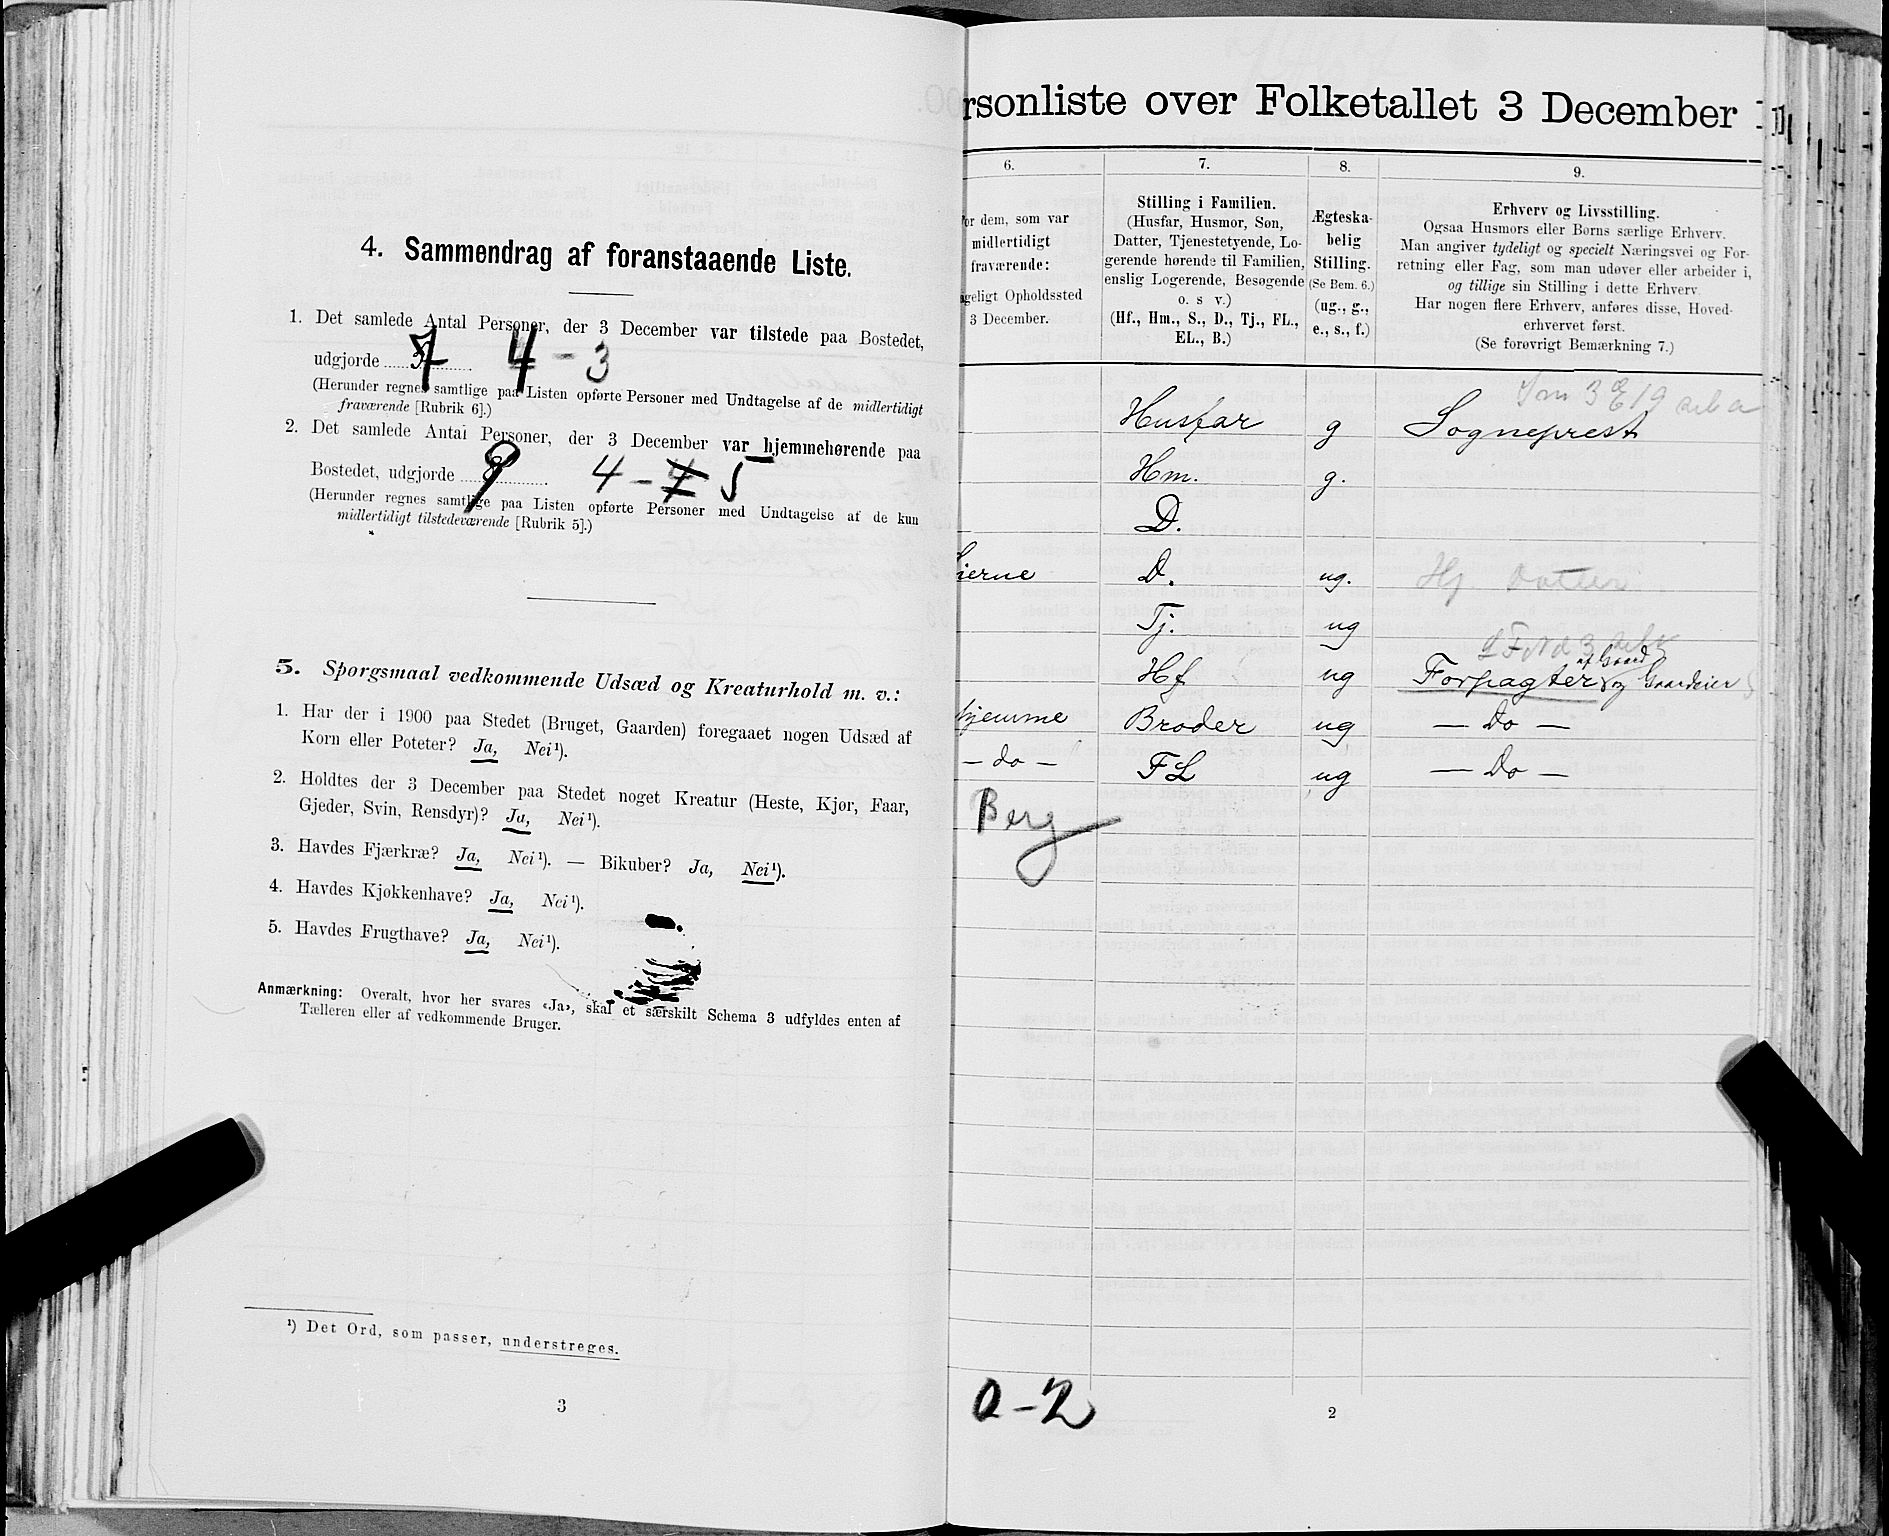 4. Sammendrag af foranstaaende Liste.
1. Det samlede Antal Personer, der 3 December var tilstede paa Bostedet,
udgjorde 7 4 - 3
(Herunder regnes samtlige paa Listen opførte Personer med Undtagelse af de midlertidigt
fraværende [Rubrik 6].)
2. Det samlede Antal Personer, der 3 December var hjemmehørende paa
Bostedet, udgjorde 9 4 - 5
(Herunder regnes samtlige paa Listen opførte Personer med Undtagelse af de kun
midlertidigt tilstedeværende [Rubrik 5].)
5. Spørgsmaal vedkommende Udsæd og Kreaturhold m. v.:
1. Har der i 1900 paa Stedet (Bruget, Gaarden) foregaaet nogen Udsæd af
Korn eller Poteter? Ja, Nei¹).
2. Holdtes der 3 December paa Stedet noget Kreatur (Heste, Kjør, Faar,
Gjeder, Svin, Rensdyr)? Ja, Nei¹).
3. Havdes Fjærkræ? Ja, Nei¹). — Bikuber? Ja, Nei¹).
4. Havdes Kjøkkenhave? Ja, Nei¹).
5. Havdes Frugthave? Ja, Nei¹).
Anmærkning: Overalt, hvor her svares «Ja», skal et særskilt Schema 3 udfyldes enten af
Tælleren eller af vedkommende Bruger.
¹) Det Ord, som passer, understreges.
3
rsonliste over Folketallet 3 December
6. 7. 8. 9.
or dem, som var
midlertidigt
fraværende:
geligt Opholdssted
3 December.
Stilling i Familien.
(Husfar, Husmor, Søn,
Datter, Tjenestetyende, Lo-
gerende hørende til Familien,
enslig Logerende, Besøgende
o. s v.)
(Hf., Hm., S., D., Tj., FL.,
EL., B.)
Ægteska-
belig
Stilling.
(Se Bem. 6.)
(ug., g.,
e., s., f.)
Erhverv og Livsstilling.
Ogsaa Husmors eller Børns særlige Erhverv.
Man angiver tydeligt og specielt Næringsvei og For-
retning eller Fag, som man udøver eller arbeider i,
og tillige sin Stilling i dette Erhverv.
Har nogen flere Erhverv, anføres disse, Hoved-
erhvervet først.
(Se forøvrigt Bemærkning 7.)
Husfar g Sogneprest
Hm. g.
D.
ierne D. ug. Hj Datter
Tj. ug
af Gaard
Hf ug Forpagter og Gaardeier
hjemme Broder ug — Do —
— do — FL ug — Do —
Berg
0-2
2